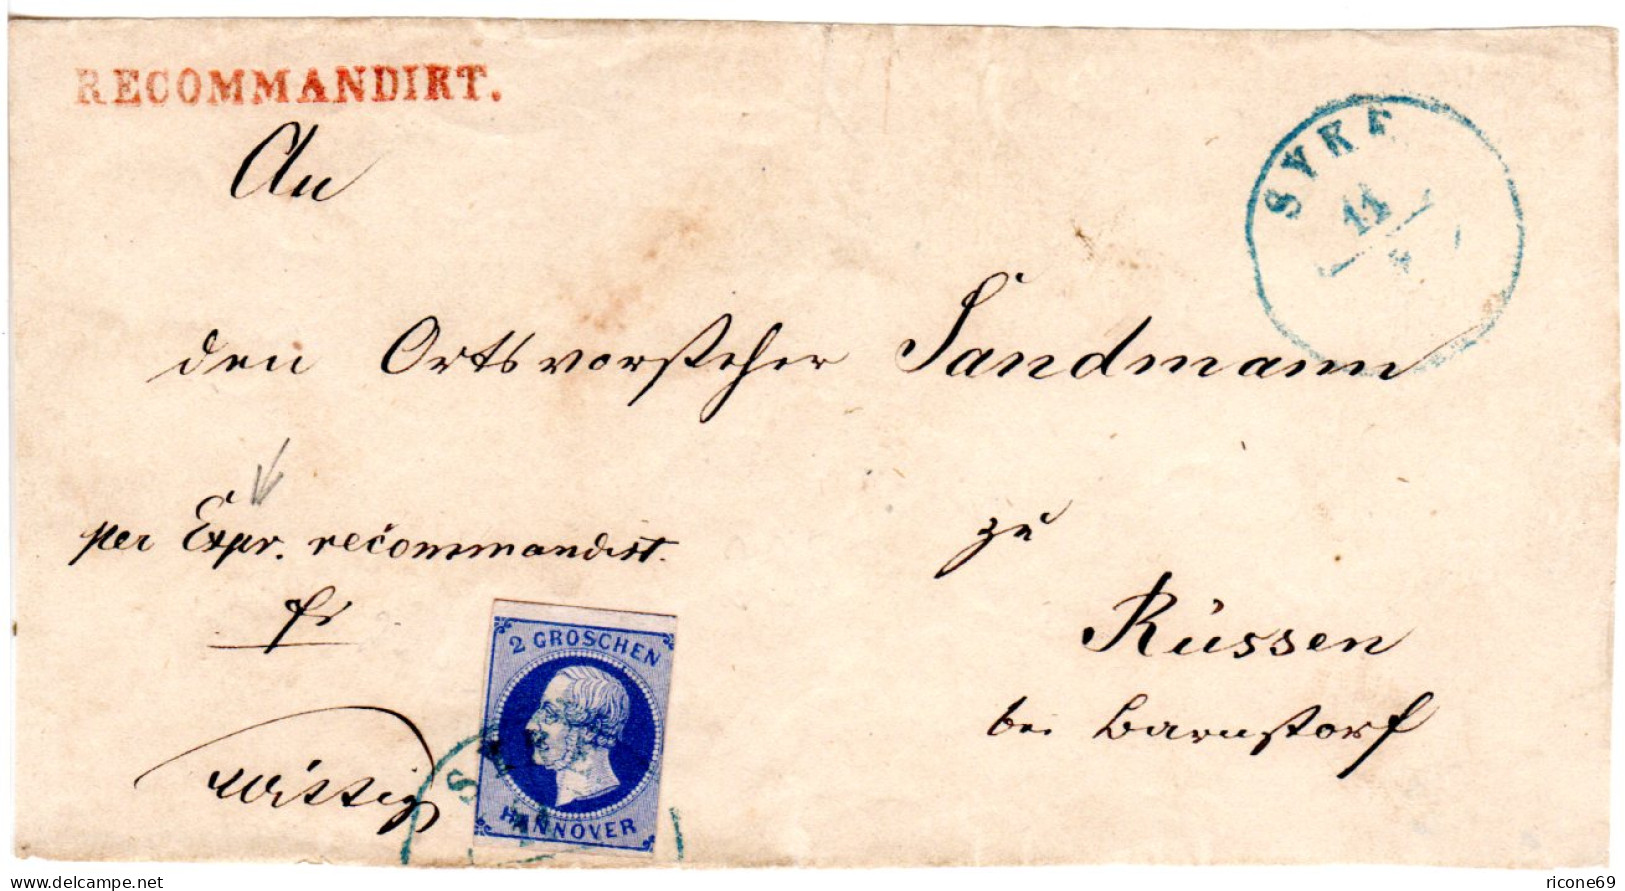 RECOMMANDIRT.
SYKE
11
An
den Ortsvorsteher Sandmann
per Expr. recommandirt.
zu
fr
Rüssen
bei Barnstorf
2 GROSCHEN
HANNOVER
SYKE
Wittig
www.delcampe.net
ricone69